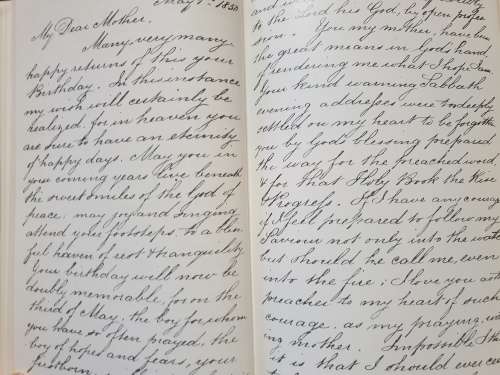 May 1st 1850
My Dear Mother,
Many, very many
happy returns of this your
Birthday. In this instance
my wish will certainly be
realized, for in heaven you
are sure to have an eternity
of happy days. May you in
your coming years live beneath
the sweet smiles of the God of
peace; may joy and singing
attend your footsteps to a bliss
ful haven of rest & tranquility
Your birthday will now be
doubly memorable, for on the
third of May, the boy for whom
you have so often prayed, the
boy of hopes and fears, your
firstborn
to the Lord his God, by open profes
sion. You my mother, have been
the great means in God's hand
of rendering me what I hope I am.
Your kind warning Sabbath
evening addresses were too deeply
settled on my heart to be forgotten
you by God's blessing prepared
the way for the preached word
& for that Holy Book the Rise
& Progress. If I have any courage
if I feel prepared to follow my
Saviour not only into the water
but should he call me, even
into the fire; I love you as the
preacher to my heart of such
courage, as my praying, watch
ing mother. Impossible I think
it is that I should ever cease